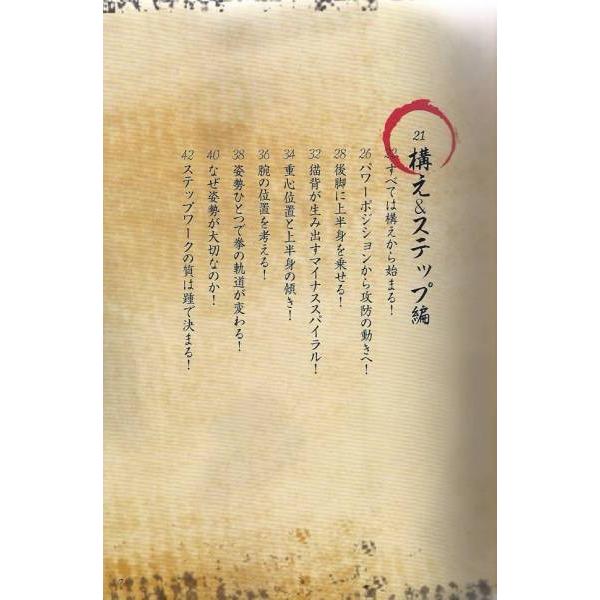 21 構え&ステップ編
22 すべては構えから始まる!
26 パワーポジションから攻防の動きへ!
28 後脚に上半身を乗せる!
32 猫背が生み出すマイナススパイラル!
34 重心位置と上半身の傾き!
36 腕の位置を考える!
38 姿勢ひとつで拳の軌道が変わる!
40 なぜ姿勢が大切なのか!
42 ステップワークの質は踵で決まる!